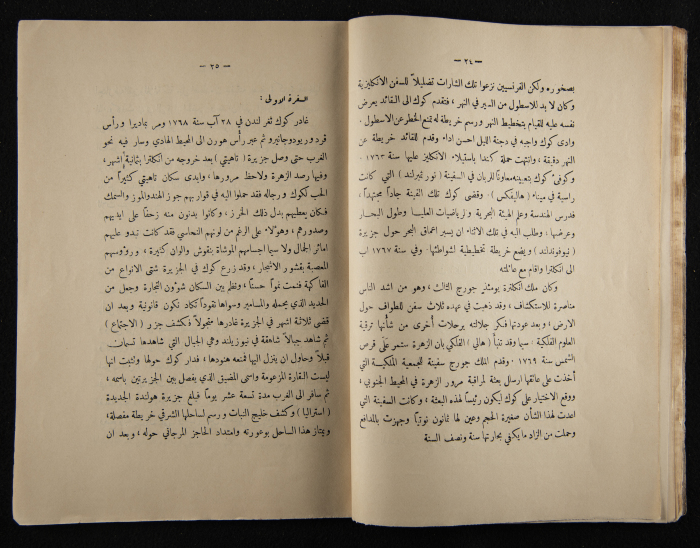 — ٢٤ —
بصخوره ولكن الفرنسيين نزعوا تلك الشارات تضليلاً للسفن الانكليزية
وكان لا بد للاسطول من السير في النهر ، فتقدم كوك الى القائد يعرض
نفسه عليه للقيام بتخطيط النهر ورسم خريطة له تمنع الخطر عن الاسطول .
وادى كوك واجبه في دجنة الليل احسن اداء وقدم للقائد خريطة عن
النهر دقيقة ، وانتهت حملة كندا باستيلاء الانكليز عليها سنة ١٧٦٣
وكوفئ كوك بتعيينه معاوناً للربان في السفينة ( نور ثمبرلند ) التي كانت
راسية في ميناء ( هاليفكس ) . وقضى كوك تلك الفينة جاداً مجتهداً ،
فدرس الهندسة وعلم الهيئة البحرية و رياضيات العليا وطول البحار
وعرضها ، وطلب اليه في تلك الاثناء ان يسبر اعماق البحر حول جزيرة
( نيوفوندلند ) ويضع خريطة تخطيطية لشواطئها . وفي سنة ١٧٦٧ اب
الى انكلترا واقام مع عائلته
وكان ملك انكلترة يومئذ جورج الثالث ، وهو من اشد الناس
مناصرة للاستكشاف ، وقد ذهبت في عهده ثلاث سفن للطواف حول
الارض ، وبعد عودتها فكر جلالته برحلات أخرى من شأنها ترقية
العلوم الفلكية . سيما وقد تنبأ ( هالي ) الفلكي بان الزهرة ستمر على قرص
الشمس سنة ١٧٦٩ . وقدم الملك جورج سفينة للجمعية الملكية التي
أخذت على عاتقها ارسال بعثة لمراقبة مرور الزهرة في المحيط الجنوبي ،
ووقع الاختيار على كوك ليكون رئيساً لهذه البعثة ، وكانت السفينة التي
اعدت لهذا الشأن صغيرة الحجم وعين لها ثمانون نوتياً وجهزت بالمدافع
وحملت من الزاد ما يكفي بحارتها سنة ونصف السنة
— ٢٥ —
السفرة الاولى :
غادر كوك ثغر لندن في ٢٨ آب سنة ١٧٦٨ ومر بماديرا ورأس
فرد وريودوجانيرو ثم عبر رأس هورن الى المحيط الهادي وسار فيه نحو
الغرب حتى وصل جزيرة ( تاهيتي ) بعد خروجه من انكلترا بثمانية أشهر ،
وفيها رصد الزهرة ولاحظ مرورها ، وابدى سكان تاهيتي كثيراً من
الحب لكوك ورجاله فقد حملوا اليه في قواربهم جوز الهند والموز والسمك
فكان يعطيهم بدل ذلك الخرز ، وكانوا يدنون منه زحفاً على ايديهم
وصدورهم ، وهؤلاء على الرغم من لونهم النحاسي فقد كانت تبدو عليهم
امائر الجمال ولا سيما اجسامهم الموشاة بنقوش والوان كثيرة ، ورؤوسهم
المعصبة بقشور الاشجار ، وقد زرع كوك في الجزيرة شتى الانواع من
الفاكهة فنمت نمواً حسناً ، ونظم بين السكان شؤون التجارة وجعل من
الحديد الذي يحمله والمسامير وسواها نقوداً تكاد تكون قانونية وبعد ان
قضى ثلاثة اشهر في الجزيرة غادرها متجولاً فكشف جزر ( الاجتماع )
ثم شاهد جبالاً شاهقة في نيوزيلند وهي الجبال التي شاهدها تسمان
قبلاً وحاول ان ينزل اليها فمنعه هنودها ، فدار كوك حولها وتثبت انها
ليست القارة المزعومة واسمى المضيق الذي يفصل بين الجزيرتين باسمه ،
ثم سافر الى الغرب مدة تسعة عشر يوماً فبلغ جزيرة هولندة الجديدة
( استراليا ) وكشف خليج النبات ورسم لساحلها الشرقي خريطة مفصلة ،
ويمتاز هذا الساحل بوعورته وامتداد الحاجز المرجاني حوله ، وبعد ان